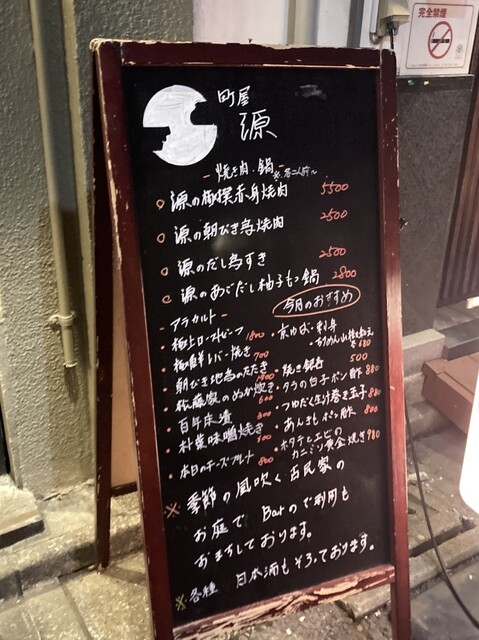 完全禁煙
町屋
源
- 焼き肉・鍋 -
源の極撰赤身焼肉 5500
源の朝びき鳥焼肉 2500
源のだし鳥すき 2500
源のあごだし柚子もつ鍋 2800
- アラカルト -
極上ローストビーフ 1800
極鮮レバー焼き 700
朝びき地鳥のたたき
佐藤家のぬか炊き 600
百年床漬 300
朴葉味噌焼き
本日のチーズプレート 800
今月のおすすめ
・京ゆば刺身
・ちりめん山椒 680
・焼き銀杏 500
・タラの白子ポン酢 880
・つゆだく生け巻き玉子
・あんきもポン酢 800
・ホタテとエビの
カニミソ黄金焼き 980
※ 季節の風吹く古民家の
お庭で Barのご利用も
お待ちしております。
※ 各種 日本酒もそろっております。